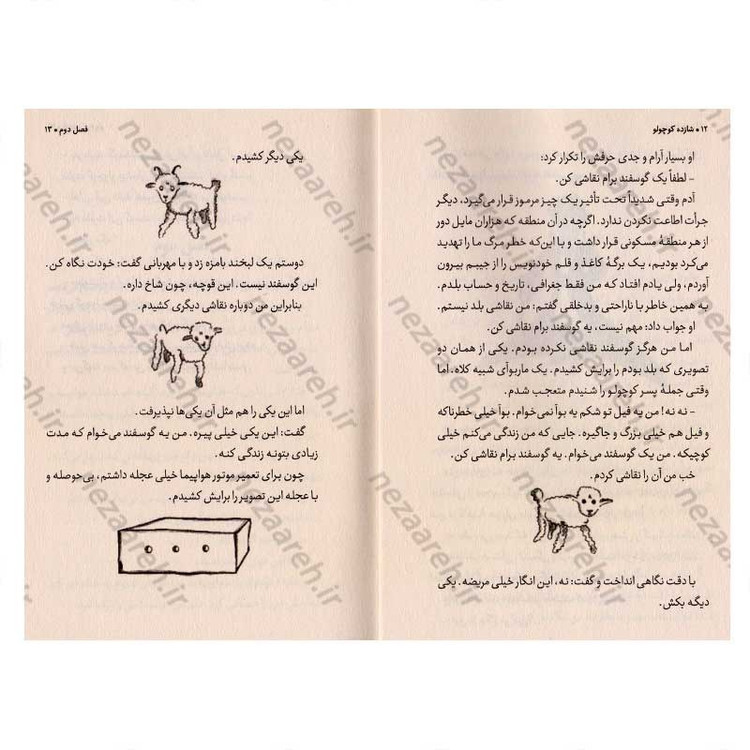 ۱۲ • شازده کوچولو
او بسیار آرام و جدی حرفش را تکرار کرد:
- لطفاً یک گوسفند برام نقاشی کن.
آدم وقتی شدیداً تحت تأثیر یک چیز مرموز قرار می‌گیرد، دیگر
جرأت اطاعت نکردن ندارد. اگرچه در آن منطقه که هزاران مایل دور
از هر منطقهٔ مسکونی قرار داشت و با این‌که خطر مرگ ما را تهدید
می‌کرد بودیم، یک برگهٔ کاغذ و قلم خودنویس را از جیبم بیرون
آوردم، ولی یادم افتاد که من فقط جغرافی، تاریخ و حساب بلدم.
به همین خاطر با ناراحتی و بدخلقی گفتم: من نقاشی بلد نیستم.
او جواب داد: مهم نیست، یه گوسفند برام نقاشی کن.
اما من هرگز گوسفند نقاشی نکرده بودم. یکی از همان دو
تصویری که بلد بودم را برایش کشیدم. یک ماربوآی شبیه کلاه. اما
وقتی جملهٔ پسر کوچولو را شنیدم متعجب شدم.
- نه نه! من یه فیل تو شکم یه بوآ نمی‌خوام. بوآ خیلی خطرناکه
و فیل هم خیلی بزرگ و جاگیره. جایی که من زندگی می‌کنم خیلی
کوچیکه. من یک گوسفند می‌خوام. یه گوسفند برام نقاشی کن.
خب من آن را نقاشی کردم.
با دقت نگاهی انداخت و گفت: نه، این انگار خیلی مریضه. یکی
دیگه بکش.
فصل دوم • ۱۳
یکی دیگر کشیدم.
دوستم یک لبخند بامزه زد و با مهربانی گفت: خودت نگاه کن.
این گوسفند نیست. این قوچه، چون شاخ داره.
بنابراین من دوباره نقاشی دیگری کشیدم.
اما این یکی را هم مثل آن یکی‌ها نپذیرفت.
گفت: این یکی خیلی پیره. من یه گوسفند می‌خوام که مدت
زیادی بتونه زندگی کنه.
چون برای تعمیر موتور هواپیما خیلی عجله داشتم، بی‌حوصله و
با عجله این تصویر را برایش کشیدم.
nezaareh.ir